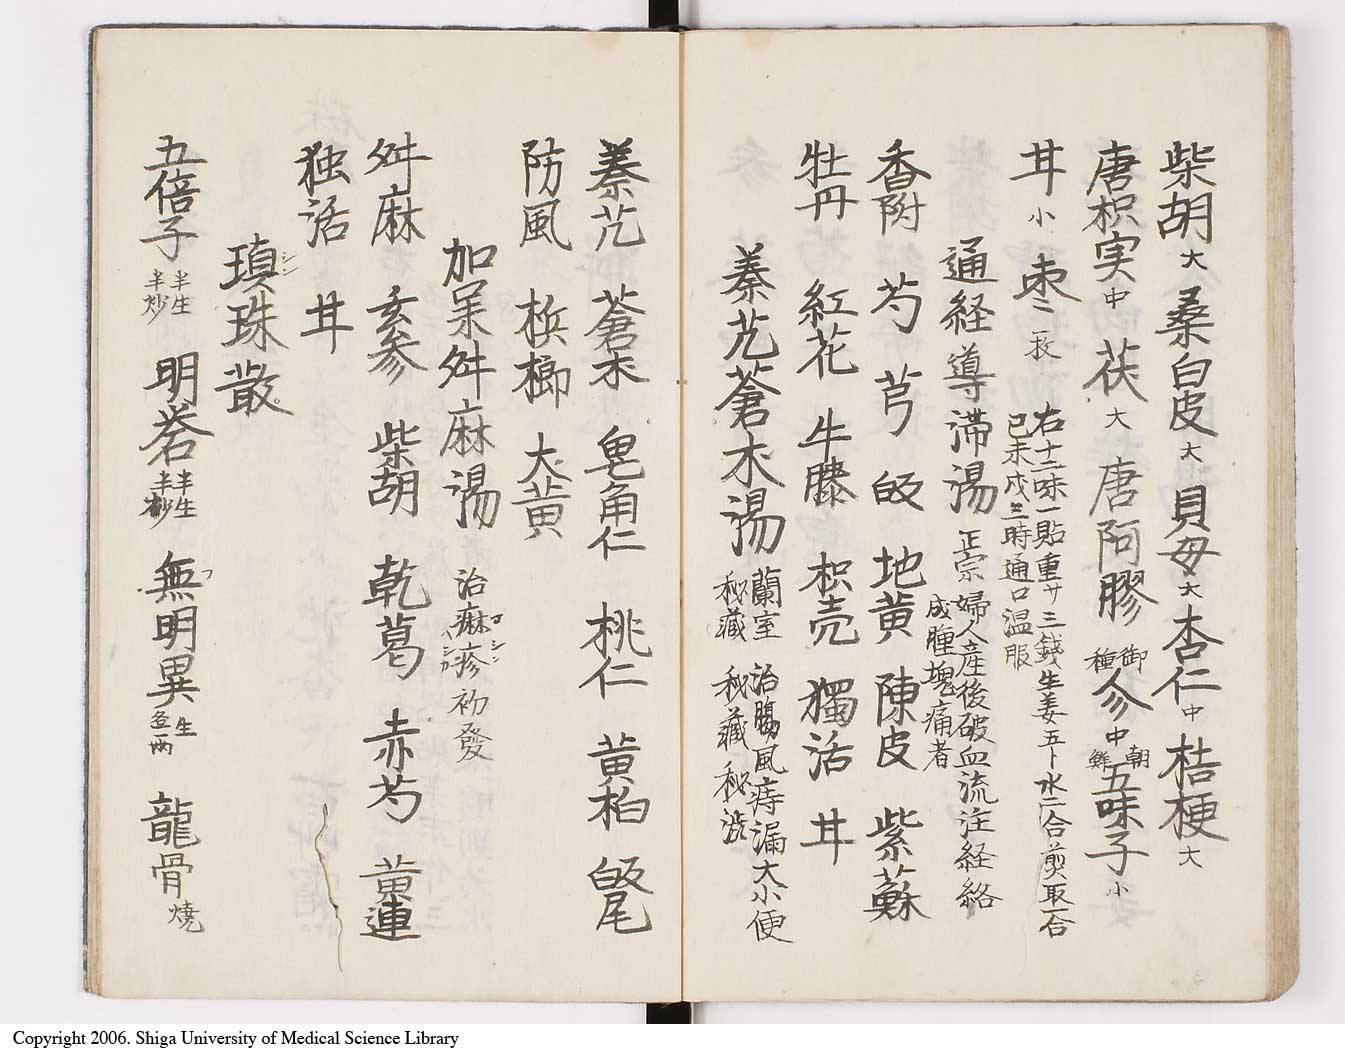 柴胡大 桑白皮大 貝母大 杏仁中 桔梗大
唐枳実中 茯大 唐阿膠 御種 參中 朝鮮 五味子小
甘小 枣二枚 右十二味一貼重サ三錢生姜五ト水二合煎取一合
已未戌三時通口温服
通経導滞湯 正宗 婦人産後破血流注経絡
成腫塊痛者
香附 芍 芎 皈 地黄 陳皮 紫蘇
牡丹 紅花 牛膝 枳壳 獨活 甘
秦艽蒼朮湯 蘭室 治腸風痔漏大小便
秘藏 秘藏 秘澁
秦艽 蒼朮 皂角仁 桃仁 黄柏 皈尾
防風 梹榔 大黄
加味舛麻湯 治麻疹初發
舛麻 玄参 柴胡 乾葛 赤芍 黄連
独活 甘
瑱珠散
シン
五倍子 半生半炒 明礬 半生半炒 無明異 生 壱两 龍骨 燒
Copyright 2006. Shiga University of Medical Science Library